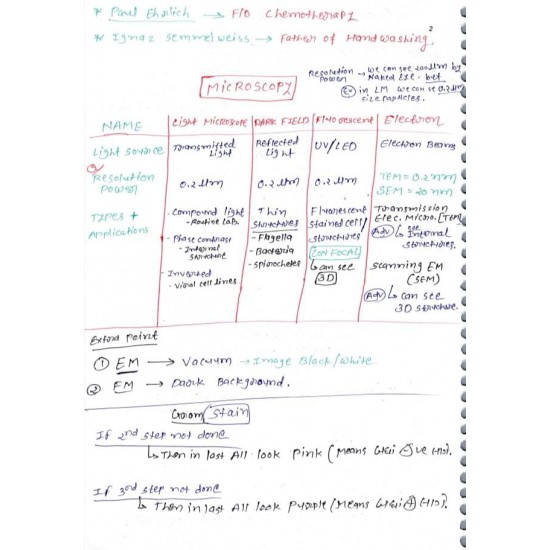 * Paul Ehrlich → F/O Chemotherapy
* Ignaz Semmelweiss → Father of Handwashing.
2
Resolution Power → we can see 200 μm by Naked Eye. but
Ex in LM we can se 0.2 μm size particles.
MICROSCOPY
NAME | Light Microscope | DARK FIELD | Fluorescent | Electron
Light source | Transmitted Light | Reflected Light | UV/LED | Electron Beams
Resolution Power | 0.2 μm | 0.2 μm | 0.2 μm | TEM = 0.2 nm SEM = 20 nm
Types + Applications
Compound light - Routine Lab.
- Phase contrast - Internal structure
- Inverted - Viral cell lines
Thin structures
- Flagella
- Bacteria
- Spirochetes
Fluorescent stained cell/structures
CONFOCAL
↳ can see 3D
Transmission Elec. Micro. [TEM]
Adv ↳ see Internal structures.
Scanning EM (SEM)
Adv ↳ can see 3D structure.
Extra Point
① EM → Vacuum → Image Black/White
② FM → Dark Background.
Gram Stain
If 2nd step not done
↳ Then in last All look Pink (Means
If 3rd step not done
↳ Then in last All look Purple (Means